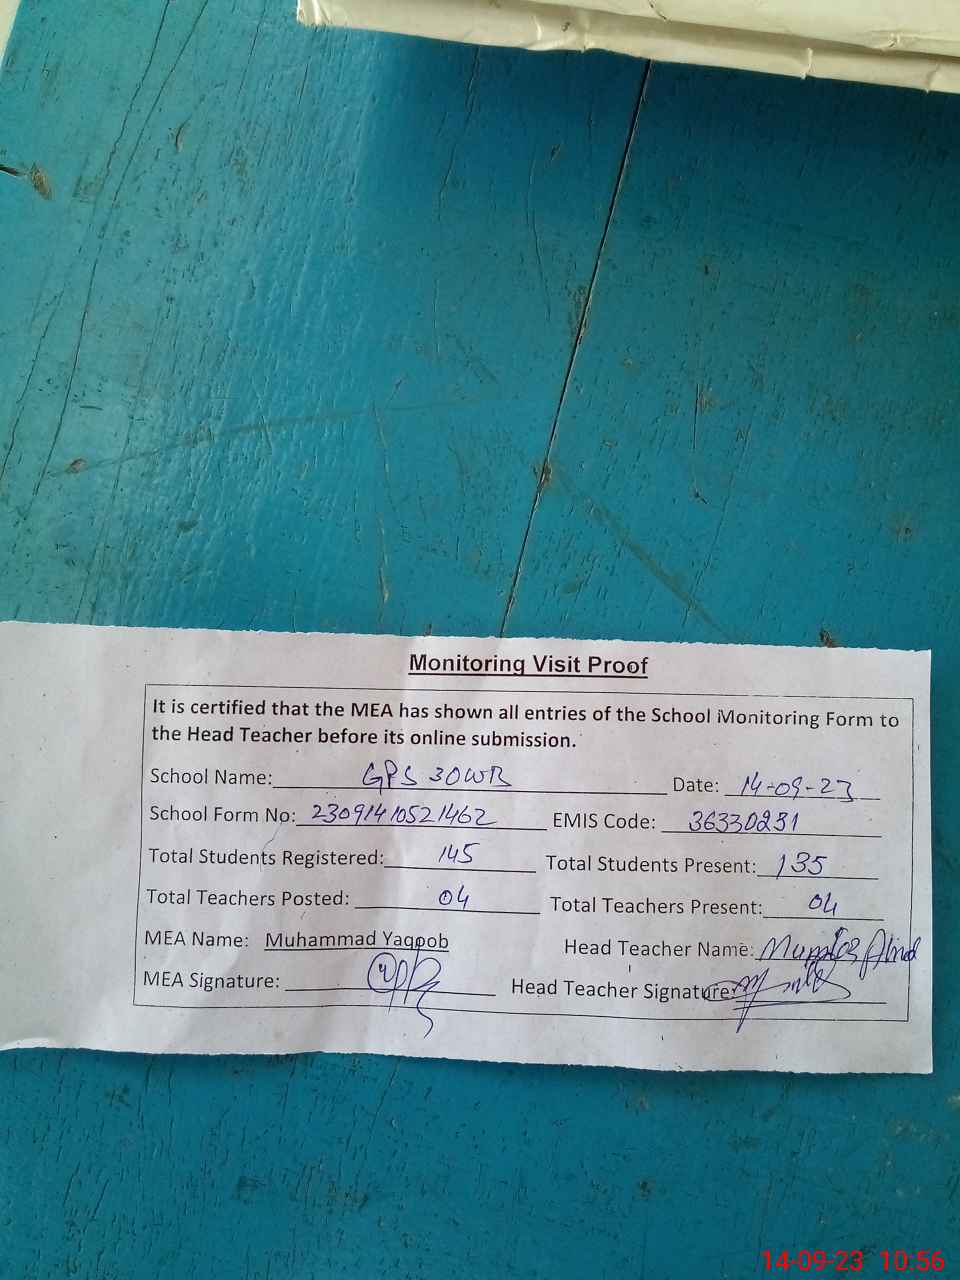 Monitoring Visit Proof
It is certified that the MEA has shown all entries of the School Monitoring Form to
the Head Teacher before its online submission.
School Name: GPS 30WB Date: 14-09-23
School Form No: 23091410521462 EMIS Code: 36330231
Total Students Registered: 145 Total Students Present: 135
Total Teachers Posted: 04 Total Teachers Present: 04
MEA Name: Muhammad Yaqoob Head Teacher Name:
MEA Signature: Head Teacher Signature:
14-09-23 10:56